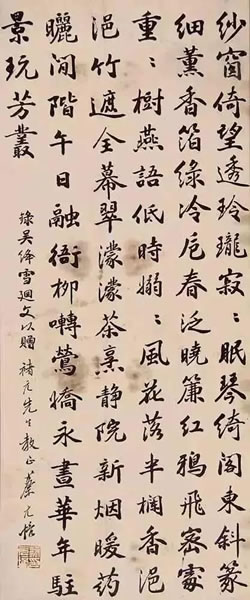 紗窗倚望透玲瓏寂〻眠琴綺閣東斜篆
細薰香箔綠冷卮春泛曉簾紅鴉飛密處
重〻樹燕語低時嫋〻風花落半欄香浥
浥竹遮全幕翠濛濛茶烹靜院新烟暖药
曬閒階午日融衙柳囀鶯嬌永晝華年駐
景玩芳叢
錄吳絳雪迴文以贈 先生教正 蔡元培